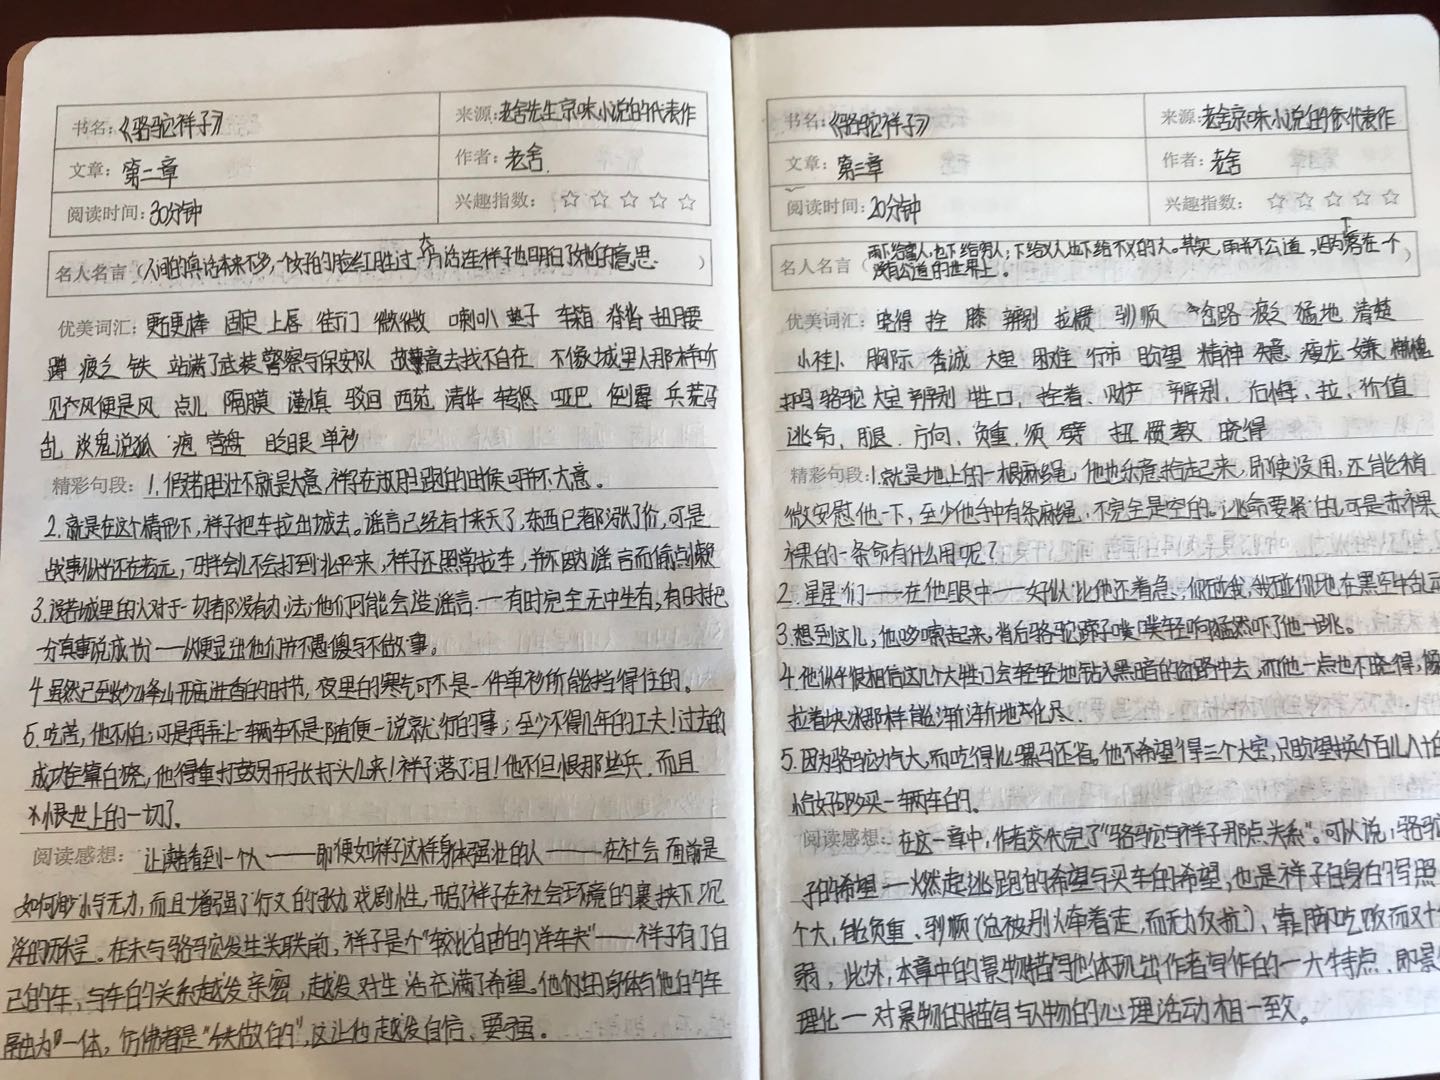 书名：《骆驼祥子》
来源：老舍先生京味小说的代表作
文章：第二章
作者：老舍.
阅读时间：30分钟
兴趣指数：☆ ☆ ☆ ☆ ☆
名人名言（人间的真话本来不多，一个女子的脸红胜过一大片话连祥子也明白了她的意思.）
优美词汇： 固定 上唇 街门 微微 喇叭 垫子 车箱 脊背 扭腰
蹲 疲乏 铁 站满了武装警察与保安队 故意去找不自在 不像城里人那样听
见个风便是风 点儿 隔膜 谨慎 驳回 西苑 清华 转悠 哑巴 倒霉 兵荒马
乱 谈鬼说狐 疤 营盘 单衫
精彩句段：1.假若胆壮不就是大意，祥子在放胆跑的时候可并不大意。
2.就是在这个情形下，祥子把车拉出城去。谣言已经有十来天了，东西已都涨了价，可是
战事似乎还在老远，一时半会儿不会打到北平来，祥子还照常拉车，并不因为谣言而偷点懒
3.设若城里的人对于一切都没有办法，他们可能会造谣言.——有时完全无中生有，有时把一
分真事说成十分——以便显出他们并不愚傻与不做事。
4.虽然已到妙峰山开庙进香的时节，夜里的寒气可不是一件单衫所能挡得住的。
5.吃苦，他不怕；可是再弄上一辆车不是随便一说就行的事；至少不得几年的工夫！过去的
成功全算白饶，他得重打鼓另开张打头儿来！祥子落了泪！他不但恨那些兵，而且
恨世上的一切了。
阅读感想： 让读者看到一个人——即便如祥子这样身体强壮的人——在社会面前是
如何渺小与无力，而且增强了行文的张力戏剧性，开启了祥子在社会环境的裹挟下沉
浮的历程。在未与骆驼发生关联前，祥子是个“较比自由的洋车夫”——祥子有了自
己的车，与车的关系越发亲密，越发对生活充满了希望。他的身体与他的车
融为一体，仿佛都是“铁做的”，这让他越发自信、要强。
书名：《骆驼祥子》
来源：老舍京味小说的代表作
文章：第三章
作者：老舍
阅读时间：20分钟
兴趣指数：☆ ☆ ☆ ☆ ☆
名人名言（雨下给富人，也下给穷人；下给义人也下给不义的人。其实，雨并不公道，因为落在一个
没有公道的世界上。）
优美词汇： 晓得 拴 膝 辨别 拉惯 驯顺 岔路 疲乏 猛地 清楚
胸际 香诚 大皇 行市 盼望 精神 失意 瘦龙 嫌
骆驼 大宝 辨别 牲口， 拴着、 财产 辨别， 后悔、 拉、价值
逃命、 腿 . 方向、 负重、须 臂 扭 惯 教 晓得
精彩句段：1.就是地上的一根麻绳，他也乐意拾起来，即使没用，还能稍
微安慰他一下，至少他手中有条麻绳，不完全是空的。逃命要紧的，可是赤裸
裸的一条命有什么用呢？
2.星星们——在他眼中——好似比他还着急，你碰我，我碰你地在黑空中乱动
3.想到这儿，他哆嗦起来，背后骆驼蹄子噗噗轻响猛然吓了他一跳。
4.他似乎很相信这几个大牲口会轻轻地钻入黑暗的岔路中去，而他一点也不晓得，像
拉着块冰那样能渐渐地化尽.
5.因为骆驼力气大，而吃得比骡马还省。他不希望得三个大宝，只盼望换个百儿八十的
恰好够买一辆车的。
阅读感想：在这一章中，作者交代完了“骆驼与祥子那点关系”。可以说，骆驼
子的希望——燃起逃跑的希望与买车的希望，也是祥子自身的写照
个大，能负重、驯顺（总被别人牵着走，而无力反抗）、靠脚吃饭而又十
弱，此外，本章中的景物描写也体现出作者写作的一大特点，即景
理化——对景物的描写与人物的心理活动相一致。